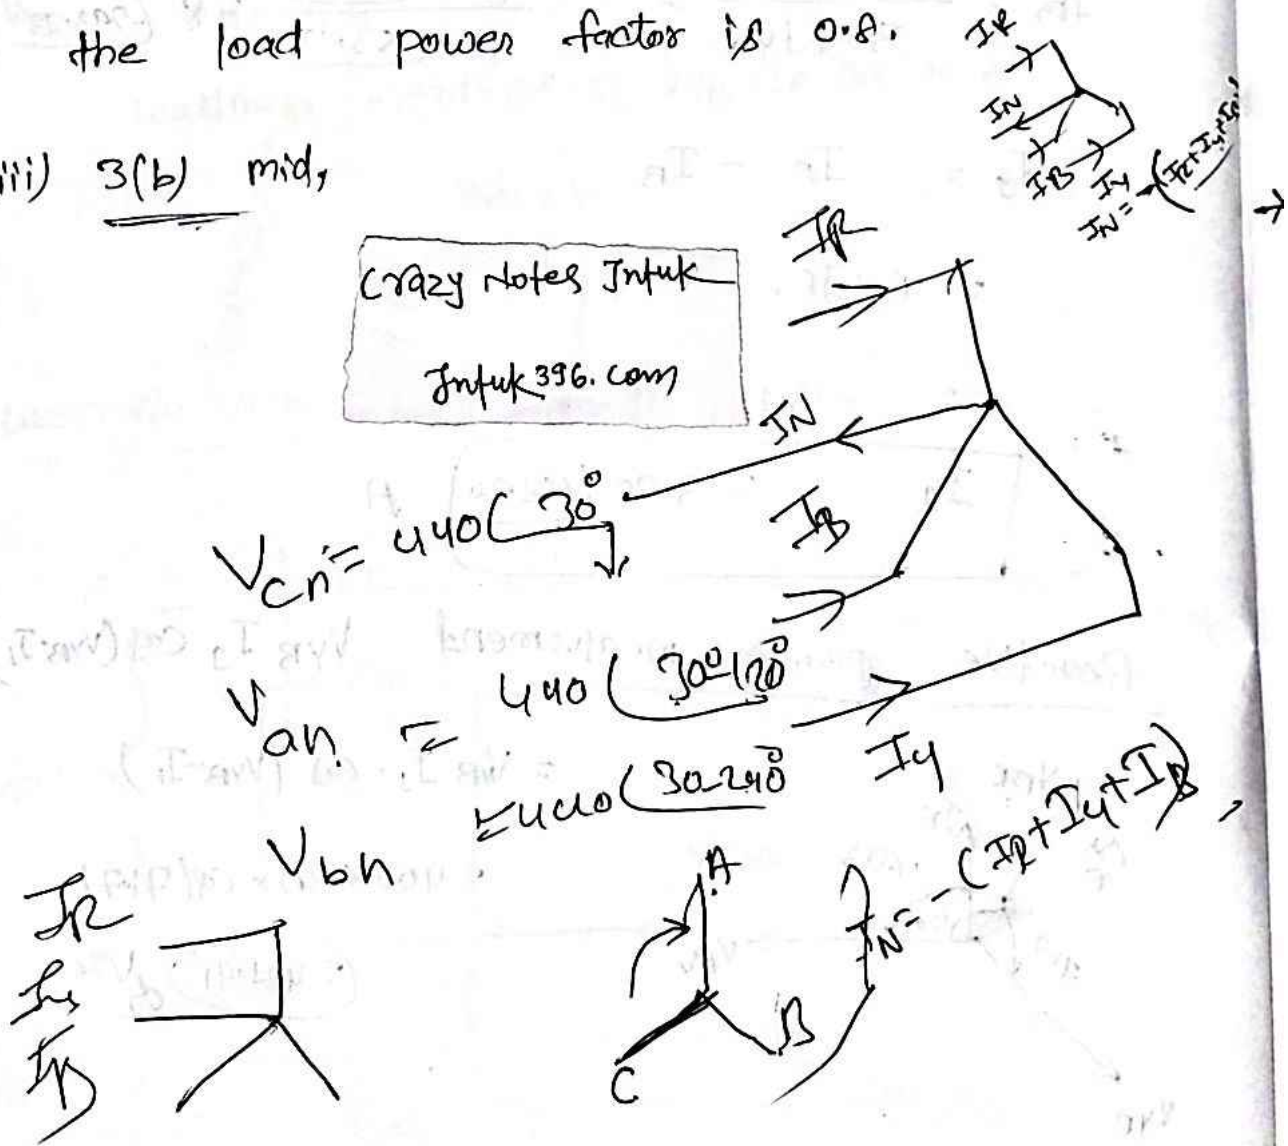 the load power factor is 0.8.
iii) 3(b) mid,
IR
IN
IB
IY
IN = -(IR+IY+IB)
IR
Crazy Notes Jntuk
Jntuk396.com
IN
Vcn = 440∠30°
IB
Van = 440∠30°-120°
IY
Vbn = 440∠30-240°
IN = -(IR+IY+IB),
IR
IY
IB
A
B
C